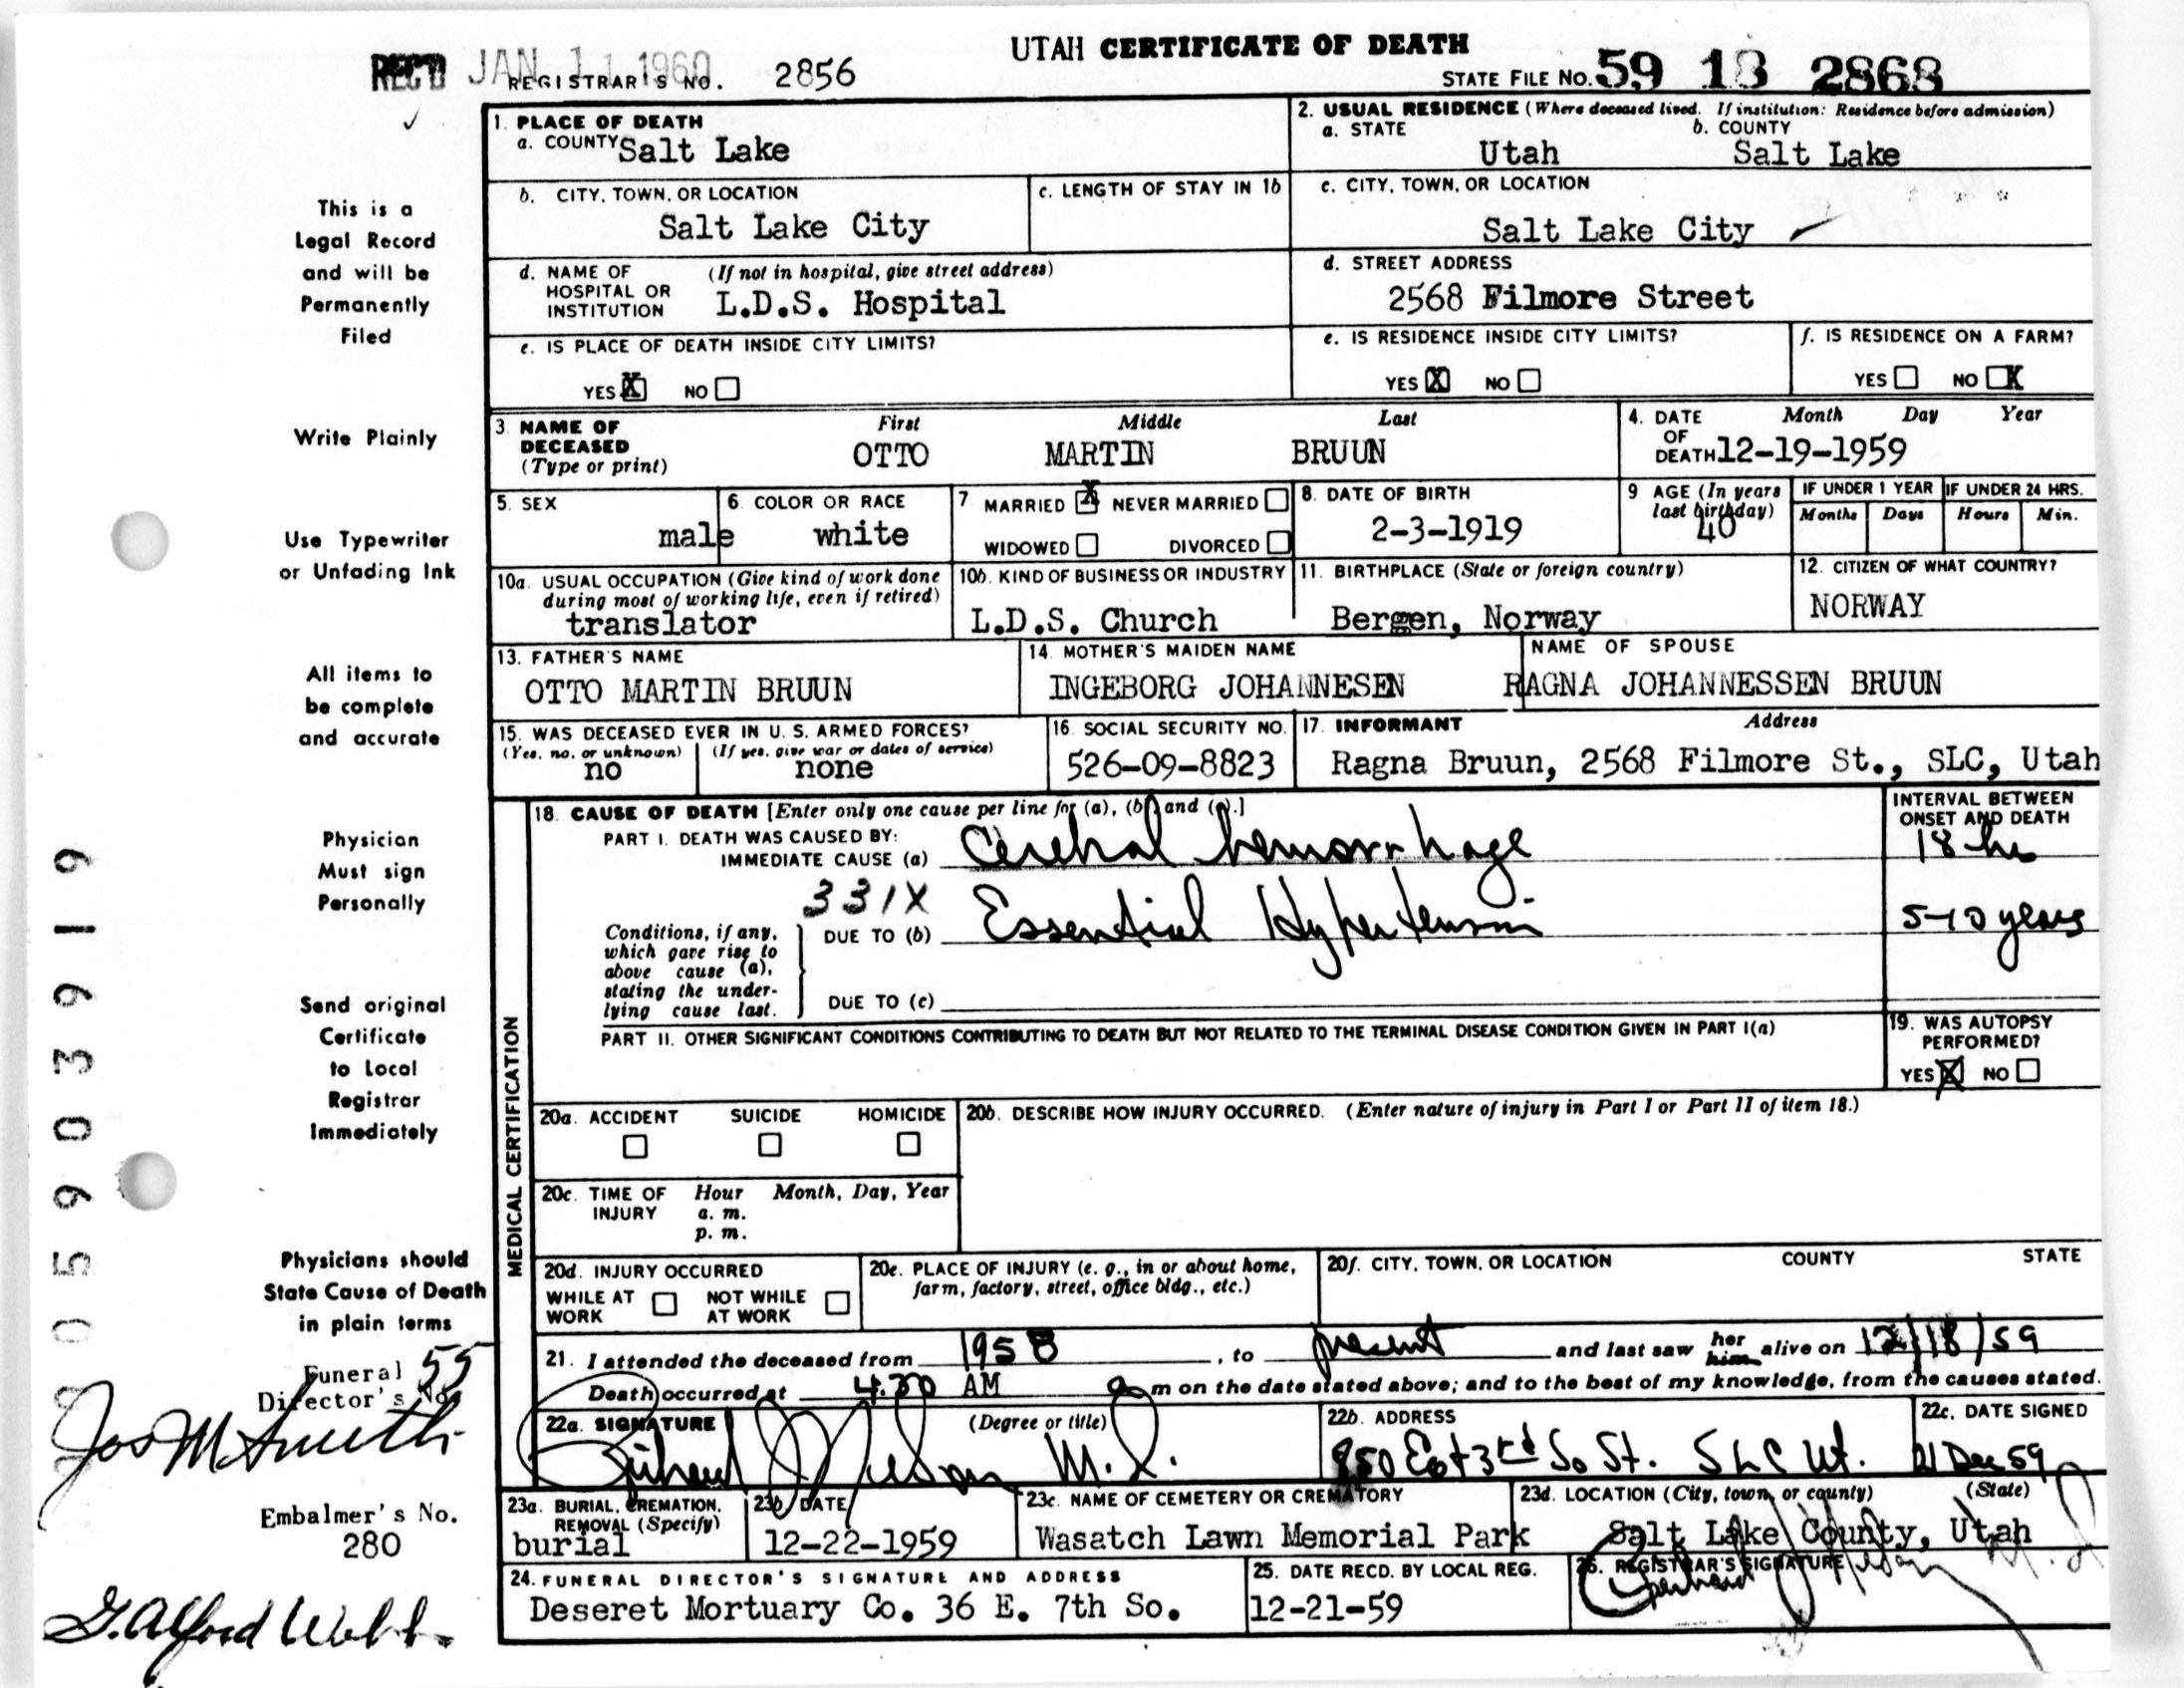 UTAH CERTIFICATE OF DEATH
REC'D JAN 11 1960
REGISTRAR'S NO. 2856
STATE FILE NO. 59 18 2868
1. PLACE OF DEATH
a. COUNTY Salt Lake
2. USUAL RESIDENCE (Where deceased lived. If institution: Residence before admission)
a. STATE Utah b. COUNTY Salt Lake
b. CITY, TOWN, OR LOCATION Salt Lake City
c. LENGTH OF STAY IN 1b
c. CITY, TOWN, OR LOCATION Salt Lake City
d. NAME OF HOSPITAL OR INSTITUTION (If not in hospital, give street address) L.D.S. Hospital
d. STREET ADDRESS 2568 Filmore Street
e. IS PLACE OF DEATH INSIDE CITY LIMITS?
YES X NO
e. IS RESIDENCE INSIDE CITY LIMITS?
YES X NO
f. IS RESIDENCE ON A FARM?
YES NO X
3. NAME OF DECEASED (Type or print)
First Middle Last
OTTO MARTIN BRUUN
4. DATE OF DEATH Month Day Year
12-19-1959
5. SEX male
6. COLOR OR RACE white
7 MARRIED X NEVER MARRIED
WIDOWED DIVORCED
8. DATE OF BIRTH 2-3-1919
9 AGE (In years last birthday) 40
IF UNDER 1 YEAR Months Days
IF UNDER 24 HRS. Hours Min.
10a. USUAL OCCUPATION (Give kind of work done during most of working life, even if retired)
translator
10b. KIND OF BUSINESS OR INDUSTRY
L.D.S. Church
11. BIRTHPLACE (State or foreign country)
Bergen, Norway
12. CITIZEN OF WHAT COUNTRY?
NORWAY
13. FATHER'S NAME
OTTO MARTIN BRUUN
14. MOTHER'S MAIDEN NAME
INGEBORG JOHANNESEN
NAME OF SPOUSE
RAGNA JOHANNESSEN BRUUN
15. WAS DECEASED EVER IN U. S. ARMED FORCES?
(Yes, no, or unknown) (If yes, give war or dates of service)
no none
16. SOCIAL SECURITY NO.
526-09-8823
17. INFORMANT Address
Ragna Bruun, 2568 Filmore St., SLC, Utah
MEDICAL CERTIFICATION
18. CAUSE OF DEATH [Enter only one cause per line for (a), (b) and (c).]
INTERVAL BETWEEN ONSET AND DEATH
PART I. DEATH WAS CAUSED BY:
IMMEDIATE CAUSE (a) Cerebral hemorrhage 18 hr
331X
Conditions, if any, which gave rise to above cause (a), stating the underlying cause last.
DUE TO (b) Essential Hypertension 5-10 years
DUE TO (c)
PART II. OTHER SIGNIFICANT CONDITIONS CONTRIBUTING TO DEATH BUT NOT RELATED TO THE TERMINAL DISEASE CONDITION GIVEN IN PART I(a)
19. WAS AUTOPSY PERFORMED?
YES X NO
20a. ACCIDENT SUICIDE HOMICIDE
20b. DESCRIBE HOW INJURY OCCURRED. (Enter nature of injury in Part I or Part II of item 18.)
20c. TIME OF INJURY Hour Month, Day, Year
a. m.
p. m.
20d. INJURY OCCURRED
WHILE AT WORK NOT WHILE AT WORK
20e. PLACE OF INJURY (e. g., in or about home, farm, factory, street, office bldg., etc.)
20f. CITY, TOWN, OR LOCATION COUNTY STATE
21. I attended the deceased from 1958, to present and last saw her him alive on 12/18/59
Death occurred at 4:30 AM a m on the date stated above; and to the best of my knowledge, from the causes stated.
22a. SIGNATURE (Degree or title)
Nelson M.D.
22b. ADDRESS
850 East 3rd So St. SLC Ut.
22c. DATE SIGNED
21 Dec 59
23a. BURIAL, CREMATION, REMOVAL (Specify)
burial
23b. DATE
12-22-1959
23c. NAME OF CEMETERY OR CREMATORY
Wasatch Lawn Memorial Park
23d. LOCATION (City, town, or county) (State)
Salt Lake County, Utah
24. FUNERAL DIRECTOR'S SIGNATURE AND ADDRESS
Deseret Mortuary Co. 36 E. 7th So.
25. DATE RECD. BY LOCAL REG.
12-21-59
26. REGISTRAR'S SIGNATURE
This is a
Legal Record
and will be
Permanently
Filed
Write Plainly
Use Typewriter
or Unfading Ink
All items to
be complete
and accurate
Physician
Must sign
Personally
Send original
Certificate
to Local
Registrar
Immediately
Physicians should
State Cause of Death
in plain terms
Funeral 55
Director's No.
Jos M Smith
Embalmer's No.
280
G. Alford Webb